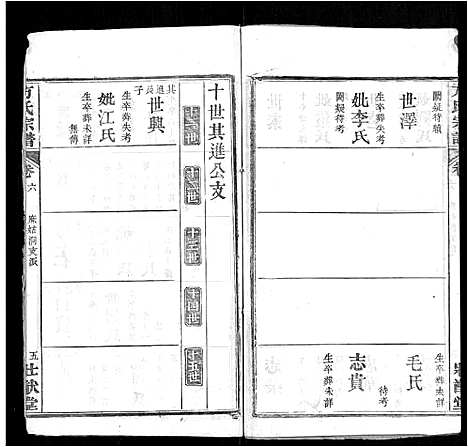 方氏宗譜
世澤
闕疑待考
妣李氏
生卒葬失考
闕疑待考
毛氏
生卒葬未詳
待考
志貴
生卒葬未詳
壯猷堂
十世其進公支
十一世
十二世
十三世
十四世
十五世
其進長子
世興
生卒葬失考
妣江氏
生卒葬未詳
無傳
方氏宗譜
卷六
麻姑洞支派
五
壯猷堂